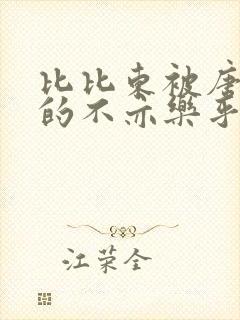 比比东被唐
的不亦乐乎
江荣全